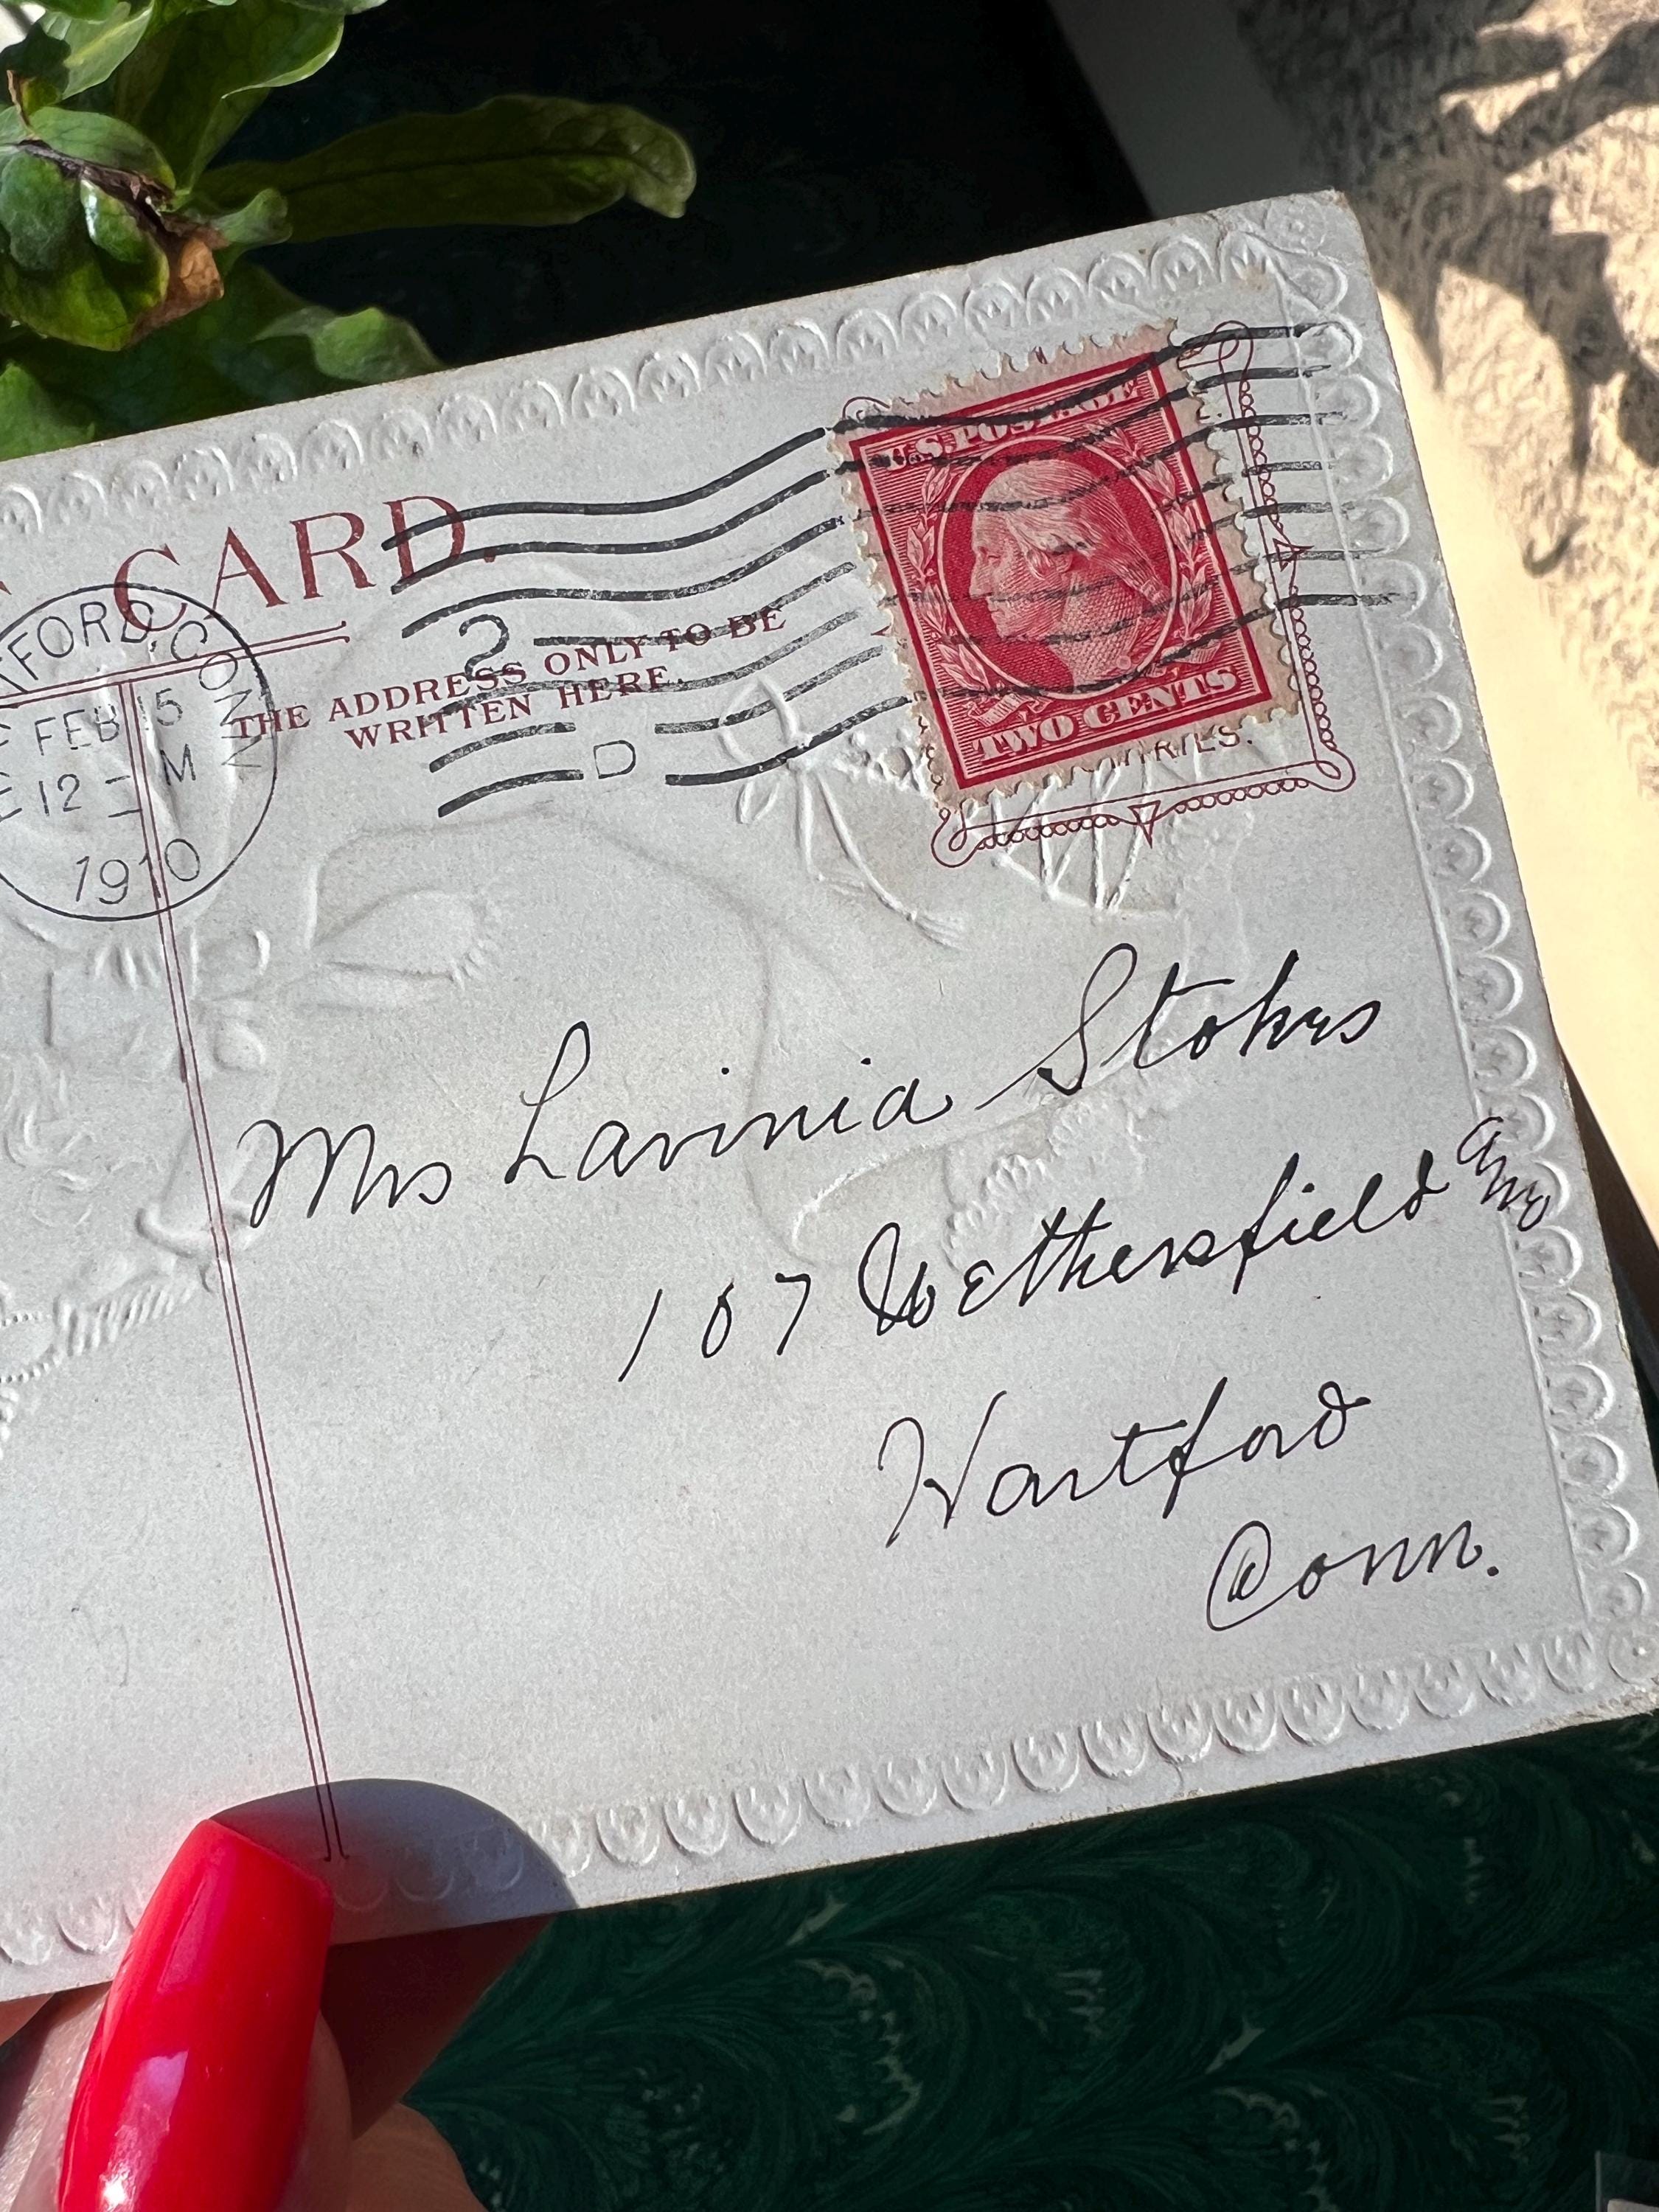 CARD.
FORD, CONN
FEB 15
12 - M
1910
2
D
THE ADDRESS ONLY TO BE
WRITTEN HERE.
U.S. POSTAGE
TWO CENTS
RIES.
Mrs Lavinia Stokes
107 Wethersfield Ave
Hartford
Conn.